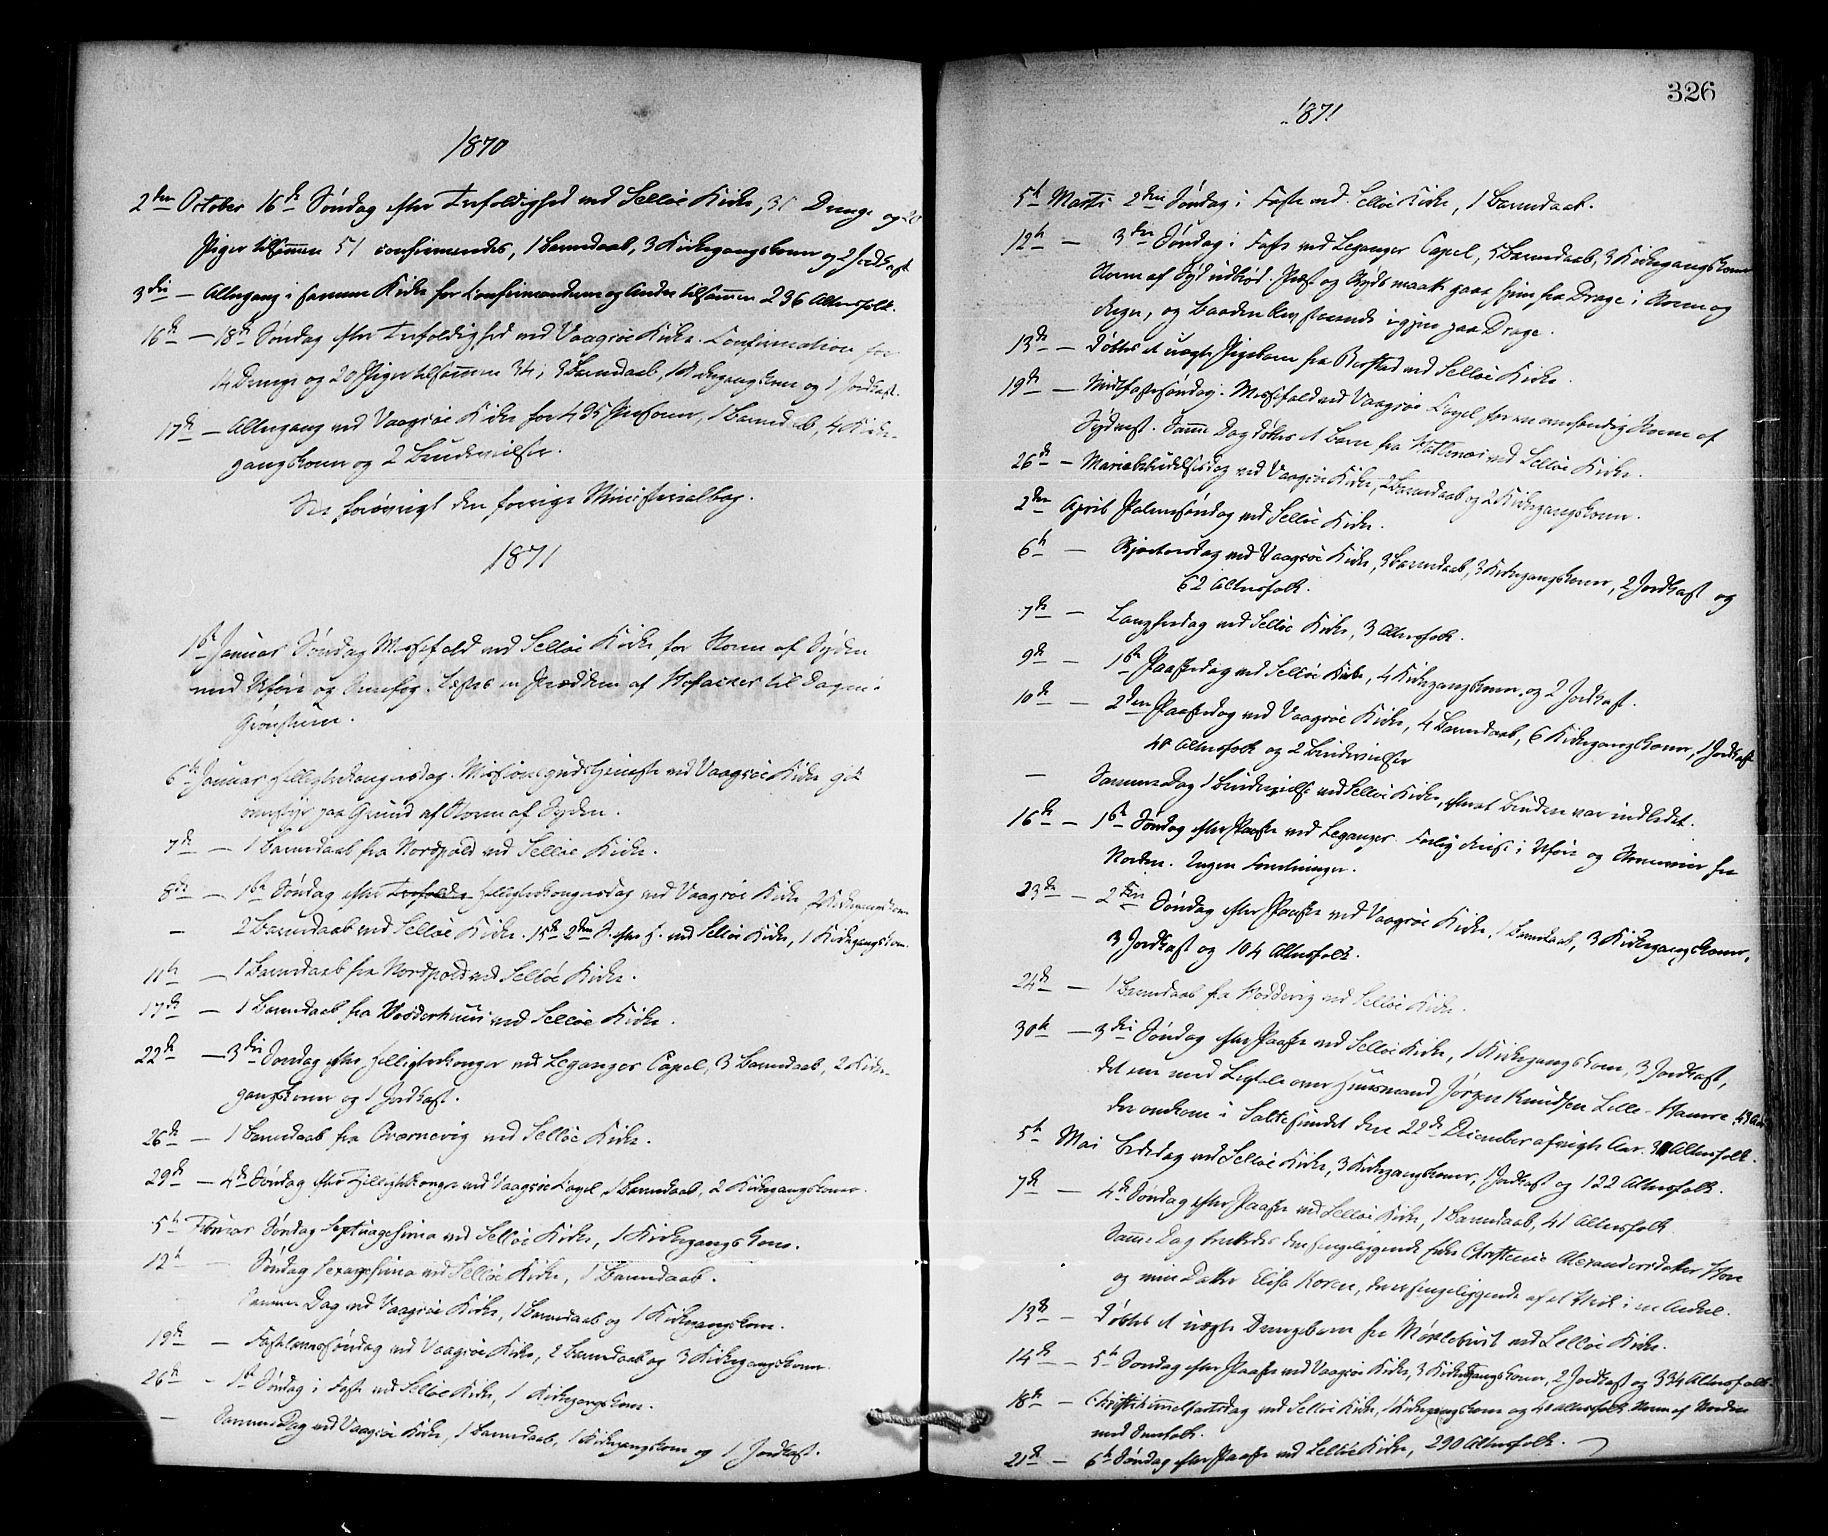 1870
2den October 16de Søndag efter Trefoldighed ved Selløe Kirke, 31 Drenge og 20
Piger tilsammen 51 confirmendes, 1 Barnedaab, 3 Kirkegangskoner og 2 Jordkast
3die — Altergang i samme Kirke for Confirmanderne og Andre tilsammen 236 Altersfolk.
16de — 18de Søndag efter Trefoldighed ved Vaagsøe Kirke. Confirmation for
14 Drenge og 20 Piger tilsammen 34; 3 Barnedaab, 1 Kirkegangskone og 1 Jordkast.
17de — Altergang ved Vaagsøe Kirke for 435 Personer, 1 Barnedaab, 4 Kirke-
gangskoner og 2 Brudevielser.
See forøvrigt den forrige Ministerialbog.
1871
1ste Januar Søndag Messefald ved Selløe Kirke for Storm af Syden
med Uføre og Snefog. Læstes en Prædiken af Hofacker til Dagen i
Grønsteen.
6te Januar Helligtrekongersdag. Missionsgudstjeneste ved Vaagsøe Kirke gik
overstyr paa Grund af Storm af Syden.
7de — 1 Barnedaab fra Nordpold ved Selløe Kirke.
8de — 1ste Søndag efter Trefoldig Helligtrekongersdag ved Vaagsøe Kirke 2 Kirkegangskoner
— 2 Barnedaab ved Selløe Kirke. 15de 2den S. efter H. ved Selløe Kirke, 1 Kirkegangskone.
11te — 1 Barnedaab fra Nordpold ved Selløe Kirke.
17de — 1 Barnedaab fra Vedderhuus ved Selløe Kirke.
22de — 3die Søndag efter Helligtrekonger ved Leganger Capel, 3 Barnedaab, 2 Kirke-
gangskoner og 1 Jordkast.
26de — 1 Barnedaab fra Qværnevig ved Selløe Kirke.
29de — 4de Søndag efter Helligtrekonger ved Vaagsøe Capel, 1 Barnedaab, 2 Kirkegangskoner.
5te Februar Søndag Septuagesima ved Selløe Kirke, 1 Kirkegangskone.
12te — Søndag Sexagesima ved Selløe Kirke, 1 Barnedaab.
Samme Dag ved Vaagsøe Kirke, 1 Barnedaab og 1 Kirkegangskone.
19de — Fastelavnssøndag ved Vaagsøe Kirke, 2 Barnedaab og 3 Kirkegangskoner.
26de — 1ste Søndag i Faste ved Selløe Kirke, 1 Kirkegangskone.
— Samme Dag ved Vaagsøe Kirke, 1 Barnedaab, 1 Kirkegangskone og 1 Jordkast.
326
1871
5te Marts 2den Søndag i Faste ved Selløe Kirke, 1 Barnedaab.
12te — 3die Søndag i Faste ved Leganger Capel, 5 Barnedaab, 3 Kirkegangskoner
Storm af Syd udbrød. Præst og Skyds maatte gaae hjem fra Drage i Storm og
Regn, og Baaden blev staaende igjen paa Drage.
13de — Døbtes et uægte Pigebarn fra Berstad ved Selløe Kirke.
19de — Midfastesøndag. Messefald ved Vaagsøe Capel formedelst Storm af
Sydvest. Samme Dag døbtes et Barn fra Hatlenæs ved Selløe Kirke.
26de — Mariæbebudelsesdag ved Vaagsøe Kirke, 2 Barnedaab og 2 Kirkegangskoner.
2den April Palmesøndag ved Selløe Kirke.
6te — Skjærtorsdag ved Vaagsøe Kirke, 3 Barnedaab, 3 Kirkegangskoner, 2 Jordkast og
62 Altersfolk.
7de — Langfredag ved Selløe Kirke, 3 Altersfolk.
9de — 1ste Paaskedag ved Selløe Kirke, 4 Kirkegangskoner, og 2 Jordkast.
10de — 2den Paaskedag ved Vaagsøe Kirke, 4 Barnedaab, 6 Kirkegangskoner, 1 Jordkast
40 Altersfolk og 2 Brudevielser
— Samme Dag 1 Brudevielse ved Selløe Kirke, efterat Bruden var indledet.
16de — 1ste Søndag efter Paaske ved Leganger. Farlig Reise i Uføre og Storm fra
Norden. Ingen Forretninger.
23de — 2den Søndag efter Paaske ved Vaagsøe Kirke, 1 Barnedaab, 3 Kirkegangskoner,
3 Jordkast og 104 Altersfolk.
24de — 1 Barnedaab fra Hoddevig ved Selløe Kirke.
30te — 3die Søndag efter Paaske ved Selløe Kirke, 1 Kirkegangskone, 3 Jordkast,
det ene med Ligtale over Huusmand Jørgen Knudsen Lille-Hamre 43 Aar
der omkom i Saltesundet den 22de December afvigte Aar. 31 Altersfolk.
5te Mai Bededag ved Selløe Kirke, 3 Kirkegangskoner, 1 Jordkast og 122 Altersfolk.
7de — 4de Søndag efter Paaske ved Selløe Kirke, 1 Barnedaab, 41 Altersfolk
Samme Dag berettedes den sengeliggende Enke Christense Alexandersdatter Hove
og min Datter Elisa Koren, der er sengeliggende af et Stød i en Ankel.
13de — Døbtes et uægte Drengebarn fra Møklebust ved Selløe Kirke.
14de — 5te Søndag efter Paaske ved Vaagsøe Kirke, 3 Kirkegangskoner, 2 Jordkast og 334 Altersfolk.
18de — Christihimmelfartsdag ved Selløe Kirke, 1 Kirkegangskone og 40 Altersfolk Storm af Norden
med
21de — 6te Søndag efter Paaske ved Selløe Kirke, 290 Altersfolk.